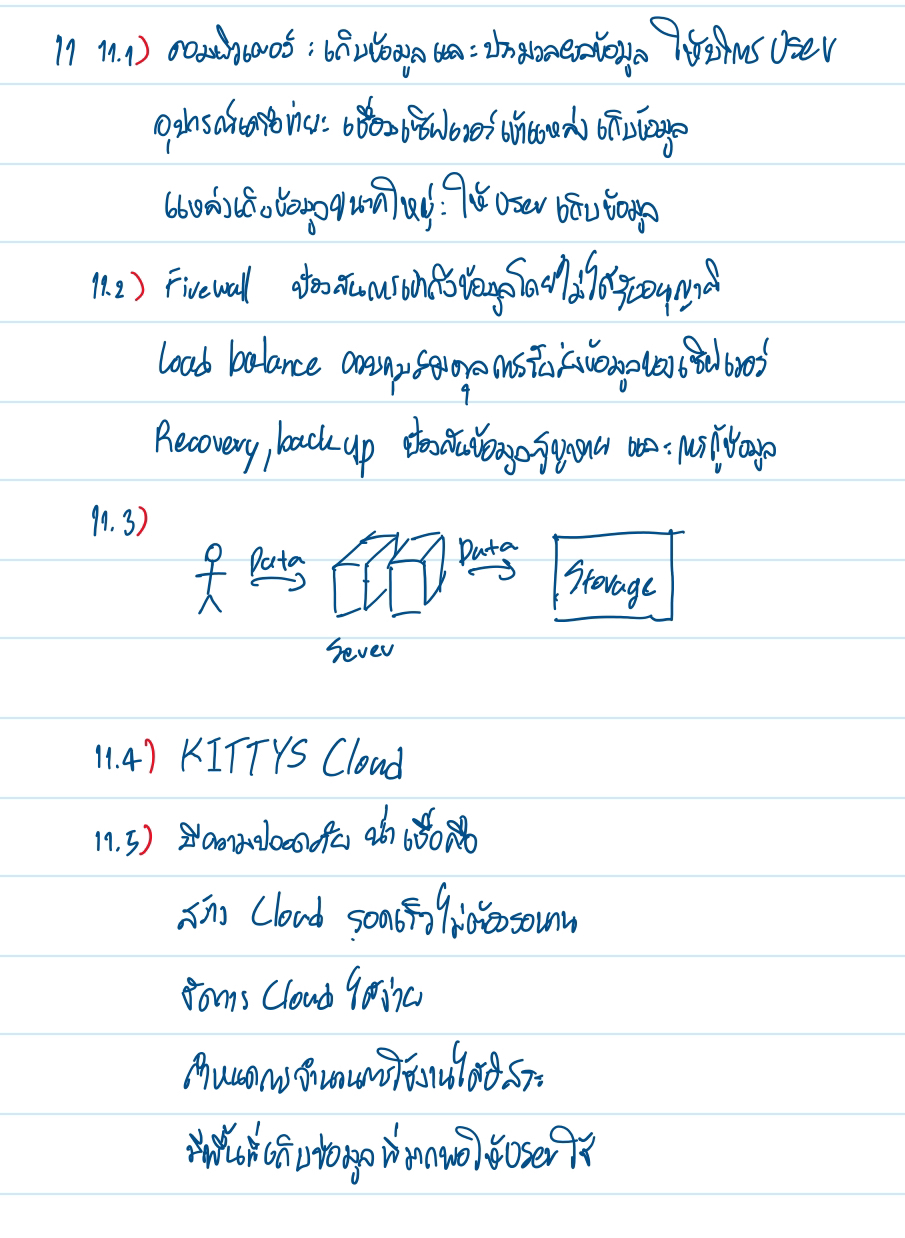 11 11.1) คอมพิวเตอร์ : เก็บข้อมูล และ ประมวลผลข้อมูล ให้บริการ User
อุปกรณ์เครือข่าย: เชื่อมเซิฟเวอร์เข้าแหล่งเก็บข้อมูล
แหล่งเก็บข้อมูลขนาดใหญ่: ให้ User เก็บข้อมูล
11.2) Firewall ป้องกันการเข้าถึงข้อมูลโดยไม่ได้รับอนุญาติ
Load balance ควบคุมสมดุลการรับส่งข้อมูลของเซิฟเวอร์
Recovery, back up ป้องกันข้อมูลสูญหาย และ การกู้ข้อมูล
11.3)
Data Data
Storage
Sever
11.4) KITTYS Cloud
11.5) มีความปลอดภัย น่าเชื่อถือ
สร้าง Cloud รวดเร็วไม่ต้องรอนาน
จัดการ Cloud ได้ง่าย
กำหนดการจำนวนการใช้งานได้อิสระ
มีพื้นที่เก็บข้อมูลที่มากพอให้User ใช้